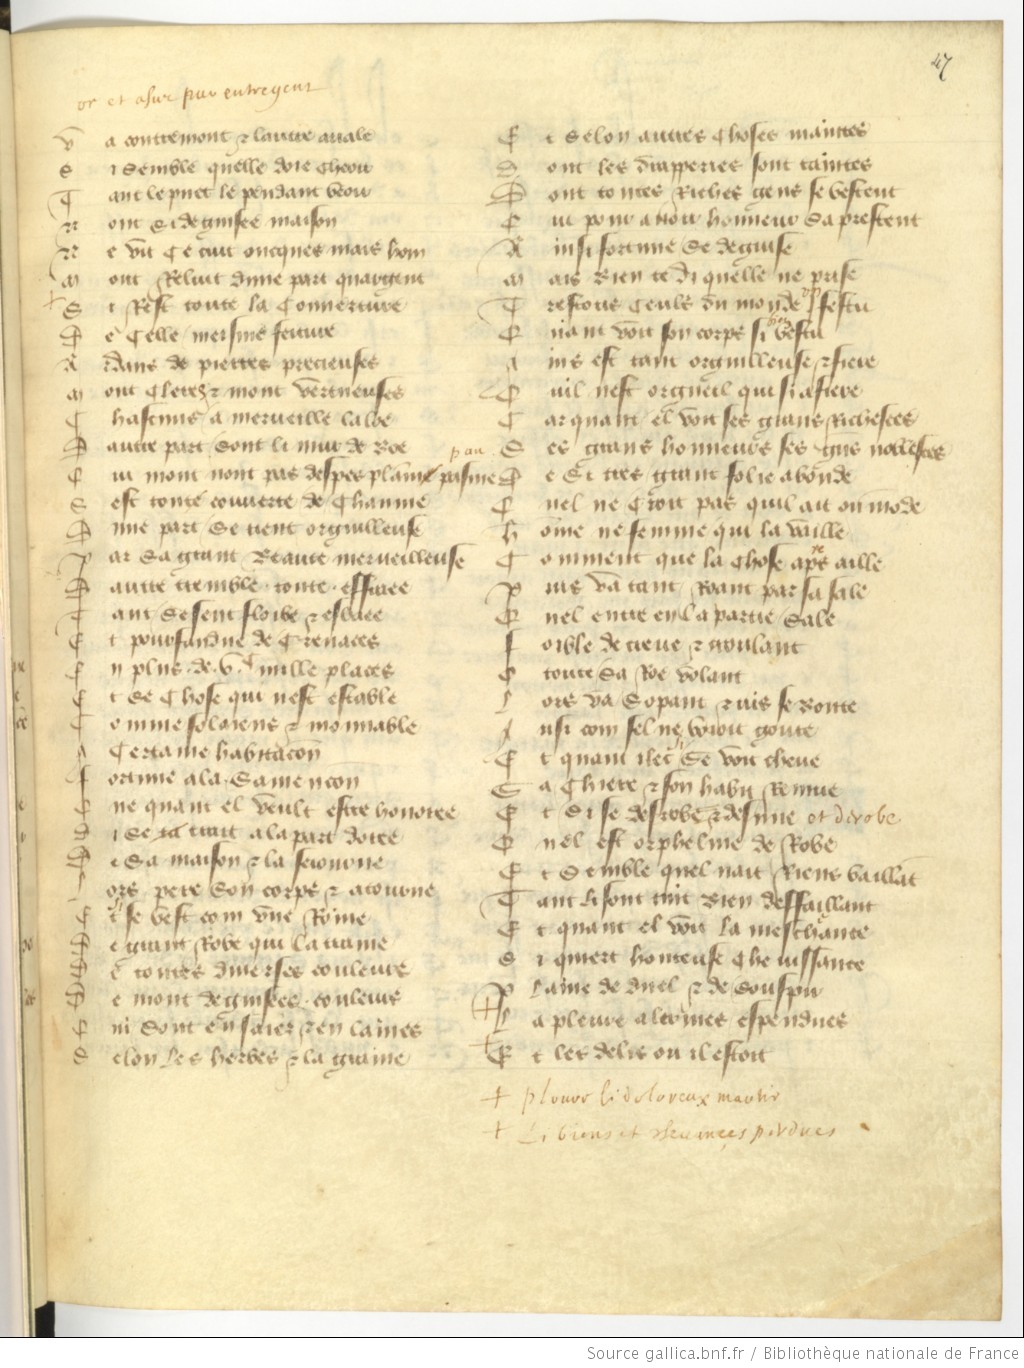 47
or et asur par entregeut
V a contremont & lautre avale
S i semble quelle doie cheoir
T ant le puet le pendant veoir
N ont si deguisee maison
N e vit ce cuit oncques mais hom
M out reluit dune part quargent
S i rest toute la couverture
D e celle meisme feture
A rdans de pierres precieuses
M out cleres & mout vertueuses
C hascuns a merveille la loe
D autre part sont li mur de boe
Q ui mont nont pas despes plaine pausme
S est toute couverte de chaume
D une part se tient orguilleuse
P ar sa grant beaute merveilleuse
D autre tremble toute effraee
T ant se sent floibe & esbaee
E t pourfandue de crevaces
E n plus de .v. mille places
E t se chose qui nest estable
C omme foloiens & mouvable
A certaine habitacion
F ortune a la sa mencon
Q ne quant el veult estre honoree
S i se trait a la part doree
D e sa maison & la seiourne
L ors pere son corps & atourne
E t se vest com une royne
D e grant robe qui la traine
D e toutes diverses couleurs
D e mout deguisees couleurs
Q ui sont en saies & en laines
S elon les herbes & la graine
E t selon autres choses maintes
D ont les drapperies sont taintes
D ont toutes riches gens se vestent
Q ui pour avoir honneur sa prestent
A insi fortune se deguise
M ais bien te di quelle ne prise
T restous ceuls du monde .i. festu
Q uant voit son corps si bien vestu
A ins est tant orguilleuse & fiere
Q uil nest orgueil qui si afiere
C ar quant el voit ses grans richesces
S es grans honneurs ses grans noblesces
D e si tres grant folie abonde
Q uel ne croit pas quil ait ou monde
H omme ne femme qui la vaille
C omment que la chose apres aille
P uis va tant roant par sa sale
Q uel entre en la partie sale
F oible de crevee & croulant
O toute sa roe volant
L ors va sopant & iuis se boute
A insi com sel ne veoit goute
E t quant ilec se voit cheue
S a chiere & son habit remue
E t si se desrobe & desnue et derobe
Q uel est orpheline de robe
E t semble quel nait riens vaillant
T ant li sont tuit bien deffaillant
E t quant el voit la meschance
S i quiert honteuse chevissance
P laine de duel & de soupir
L a pleure a lermes espendues
E t les delis ou il estoit
+ plouor li doloreux martir
+ Li biens et chevances perdues
Source gallica.bnf.fr / Bibliothèque nationale de France